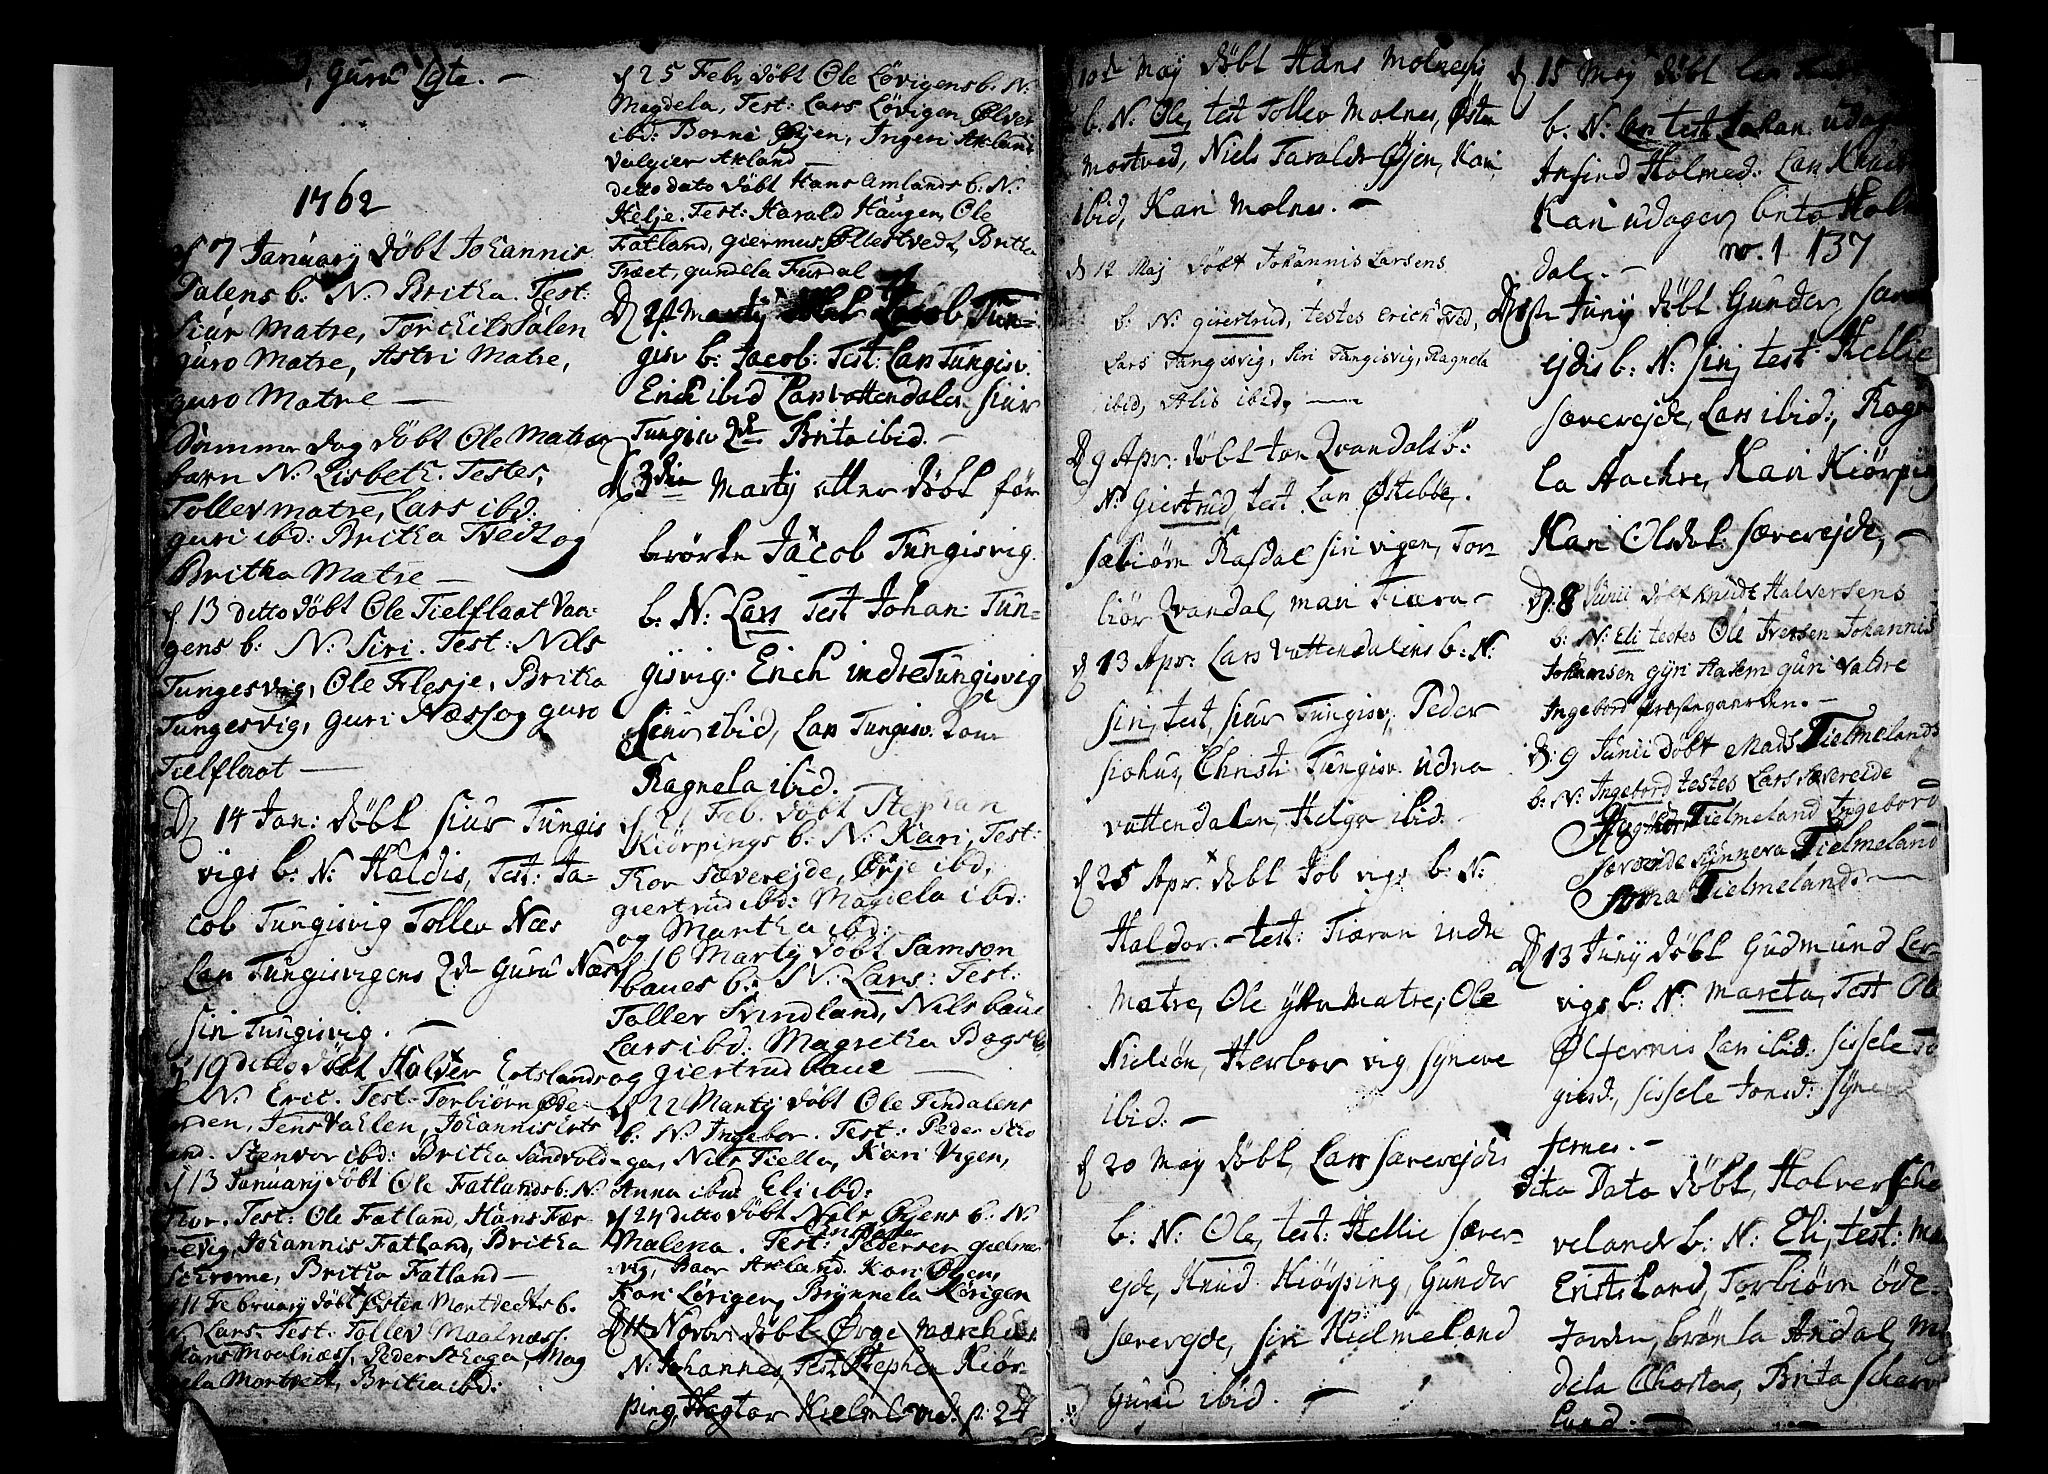 Guru Lgte. —
1762
d 7 January döbt Johannis
Dalens b: N: Britha. Test:
Siur Matre, Torchils Dalen
guro Matre, Astri Matre,
guro Matre —
Samme dag döbt Ole Matres
barn N: Lisbeth. Testes,
Tollev matre, Lars ibd:
guri ibd: Britha Tvedt og
Britha Matre —
d 13 ditto döbt Ole Tielflaat Van-
gens b: N: Siri. Test: Nils
Tungesvig, Ole Flesje, Britha
Tungesvig, guri Næss og guro
Tielflaat —
D 14 Jan: döbt Siur Tungis
vigs b: N: Haldis, Test: Ja-
cob Tungisvig Tollev Næs
Lars Tungisvigens 2d Guru Næs
siri Tungisvig. —
d 19 ditto döbt Halder Ertslands
N: Eric. Test: Torbiörn Öde-
Jens Vahlen, Johannis Erts
land. Stenvor ibd: Britha Sandvold
d 13 January döbt Ole Fatlands b: N:
Thor. Test: Ole Fatland, Hans Fær-
revig, Johannis Fatland, Britha
Schrome, Britha Fatland —
d 11 February döbt Østen Mortvedts b.
N: Lars. Test: Tollev Maalnæss.
Hans Moalnæss, Peder Schoga, Mag
dela Mortvedt, Britha ibd:
d 25 Febr döbt Ole Lövigens b. N:
Magdela, Test: Lars Lövigen Ølver
ibd: Borni Øjen, Ingeri Akland
Valgier Akland —
ditto dato döbt Hans Amlands b. N:
Helje. Test: Harald Haugen, Ole
Fatland, giermus Øllestvedt, Britha
Træet, gundela Furdal
D 21 Marty Jacob Tun-
gisv b: Jacob: Test: Lars Tungisv.
Erich ibid Lars vattendalen Siur
Tungisv 2d Brita ibid. —
D 3die Marty atter döbt för
berörte Jacob Tungisvig
b. N: Lars Test Johan: Tun-
gisvig. Erich indre Tungisvig
Siur ibid, Lars Tungisv.
Ragnela ibid.
d 21 Feb. döbt Stephan
Kiörpings b. N. Kari, Test:
Thor Sæverejde, Ørje ibd,
giertrud ibd: Magdela ibd:
og Martha ibd:
d 16 Marty döbt Samson
baues b: N. Lars: Test:
Toller Svindland, Nils baue
Lars ibd: Magretha
og giertrud baue —
d 22 Marty döbt Ole Tindalens
b: N: Ingebor. Test: Peder Scho
ga, Nils Tiella, Kari Vigen,
Anna ibd: Eli ibd:
d 24 ditto döbt Nils Øyens b: N:
Malena. Test: Pedersen gielme
vig, Baar Akland. Kari Øyen,
Kari Lörigen, Brynnela Lörigen
D 11 Novbr: döbt Ørge
N: Johannes, Test: Stephen Kiör-
ping, Hogtor Kielmeland p: 24
d 10de May döbt Hans Molnessis
b. N: Ole, test Tollev Molnes, Østen
mostved, Niels Taraldr Øjen, Kari
ibid, Kari Molnes. —
d 12 May döbt Johannis Larsens
b: N: giertrud, testes Erich Tved,
Lars Tungesvig, Siri Tungisvig, Ragnela
ibid, Alis ibid. —
D 9 Apr: döbt Jon Qvandals b:
N: Giertrud, test Lars Østebbe,
Sæbiörn Rafdal siri vigen, Tor-
biör Qvandal, mari Tiæra —
d 13 Apr: Lars Vattendalens b: N:
Siri, test, siur Tungisv, Peder
siohus, Christi Tungisv. udna
vattendalen, Helga ibid. —
d 25 Apr. döbt Job vigs b: N:
Haldor. — test: Tiæran indre
matre, Ole ytre Matre, Ole
Nielsön, Herbor vig, Syneve
ibid: —
d 20 May döbt, Lars særerejdis
b: N: Ole, test: Hellie særer-
ejde, Knud Kiörping, Gunder
særerejde, siri Kielmeland
Guru ibid. —
d 15 Maj döbt Lar
b. N: Lars test Johan: udagen
Arfind Holmed: Lars Knud
Kari udagen, brita Holm
dal. —
no. 1 137
D 1st Juny döbt Gunder sær
ejdis b: N: Siri, test: Hellie
særerejde, Lars ibid:, Ragn
la Aachre, Kari Kiörping
Kari Olsdat: særerejde, —
D: 8 Junii döbt Knudt Halversens
b: N: Eli testes Ole Iversen Johannis
Johansen gyri guri Valdre
Ingebord Præstegaarden. —
D: 9 Junii döbt Mads Tielmelands
b: N: Ingebord testes Lars Sævereide
Tielmeland Ingebord
Sævereide Synnera Tielmeland
Anna Tielmeland: —
D 13 Juny döbt Gudmund Ler-
vigs b: N: mareta, Test Ole
Ølfernis Lars ibid: sissele
giusd:, sissele Jonsd: Syneve
fernes. —
dito Dato döbt, Halver Sche
velands b: N: Eli, test:
Eritsland, Torbiörn öde-
Jorden, brönla Andal,
dela Choster, Brita Schar
lund. —